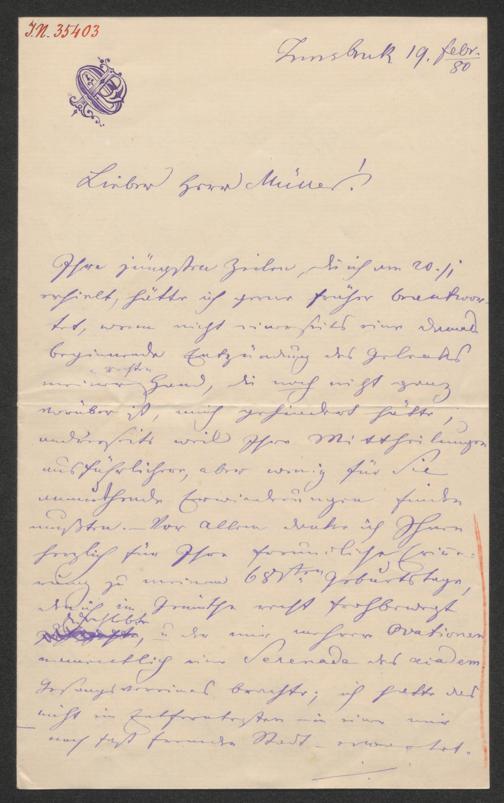 I.N. 35403
Innsbruck 19. febr. 80
Lieber Herr Müller!
Ihre jüngsten Zeilen, die ich am 20./I
erhielt, hätte ich gerne früher beantwor-
tet, wenn nicht einerseits eine damals
beginnende Entzündung des Gelenks
meiner rechten Hand, die noch nicht ganz
vorüber ist, mich gehindert hätte,
andrerseits weil Ihre Mittheilungen
ausführlichere, aber wenig für Sie
anmuthende Erwiederungen finden
mußten. – Vor allem danke ich Ihnen
herzlich für Ihre freundliche Erinne-
rung zu meinem 68sten Geburtstage,
den ich im Gemüthe recht frohbewegt
verlebte, u der mir mehrere Ovationen
namentlich eine Serenade des akadem.
Gesangvereines brachte; ich hatte das
nicht im Entferntesten – in einer mir
noch fast fremden Stadt – erwartet.